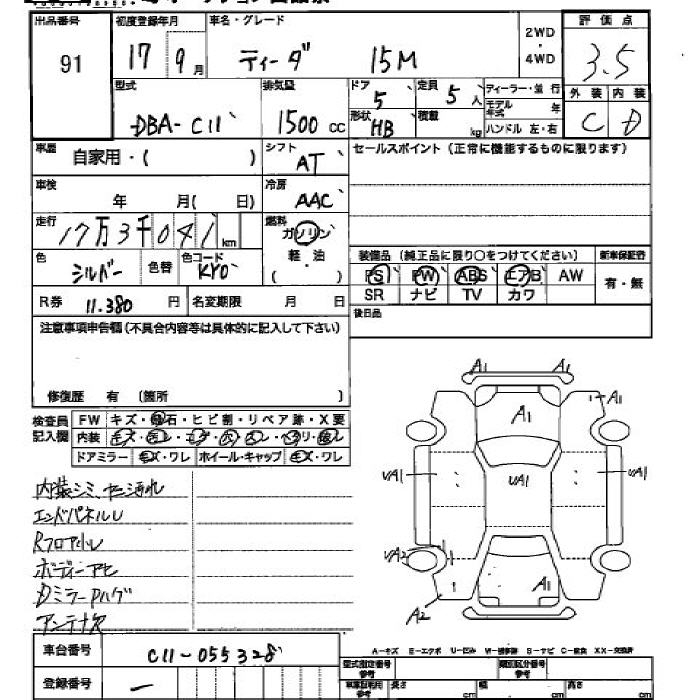 出品番号
91
初度登録年月
17 9月
車名・グレード
ティーダ 15M
2WD
・
4WD
評価点
3.5
外装 内装
C D
型式
DBA-C11
排気量
1500 cc
ドア
5
定員
5人
ディーラー・並行
モデル年式 年
ハンドル 左・右
形状
HB
積載
kg
車歴
自家用・( )
シフト
AT
セールスポイント(正常に機能するものに限ります)
車検
年 月( 日)
冷房
AAC
走行
17万3千041 km
燃料
ガソリン
軽・油
( )
色
シルバー
色替
色コード
KY0
装備品(純正品に限り○をつけてください)
新車保証書
PS PW ABS エアB AW
有・無
SR ナビ TV カワ
R券 11.380 円
名変期限 月 日
後日品
注意事項申告欄(不具合内容等は具体的に記入して下さい)
修復歴 有 (箇所 )
検査員記入欄
FW キズ・飛石・ヒビ割・リペア跡・X要
内装
ドアミラー キズ・ワレ ホイール・キャップ キズ・ワレ
内装シミ、ヤニ汚れ
エンドパネルU
Rフロア小U
ボディーアセ
DミラーPハゲ
アンテナ欠
A1
A1
A1
A1
UA1
UA1
UA1
UA2
A2
A1
A1
車台番号 C11-055328
登録番号 ー
A-キズ E-エクボ U-凹み W-補修跡 S-サビ C-腐食 XX-交換済
型式指定番号
参考
類別区分番号
参考
車車証利用
参考
長さ cm
幅 cm
高さ cm